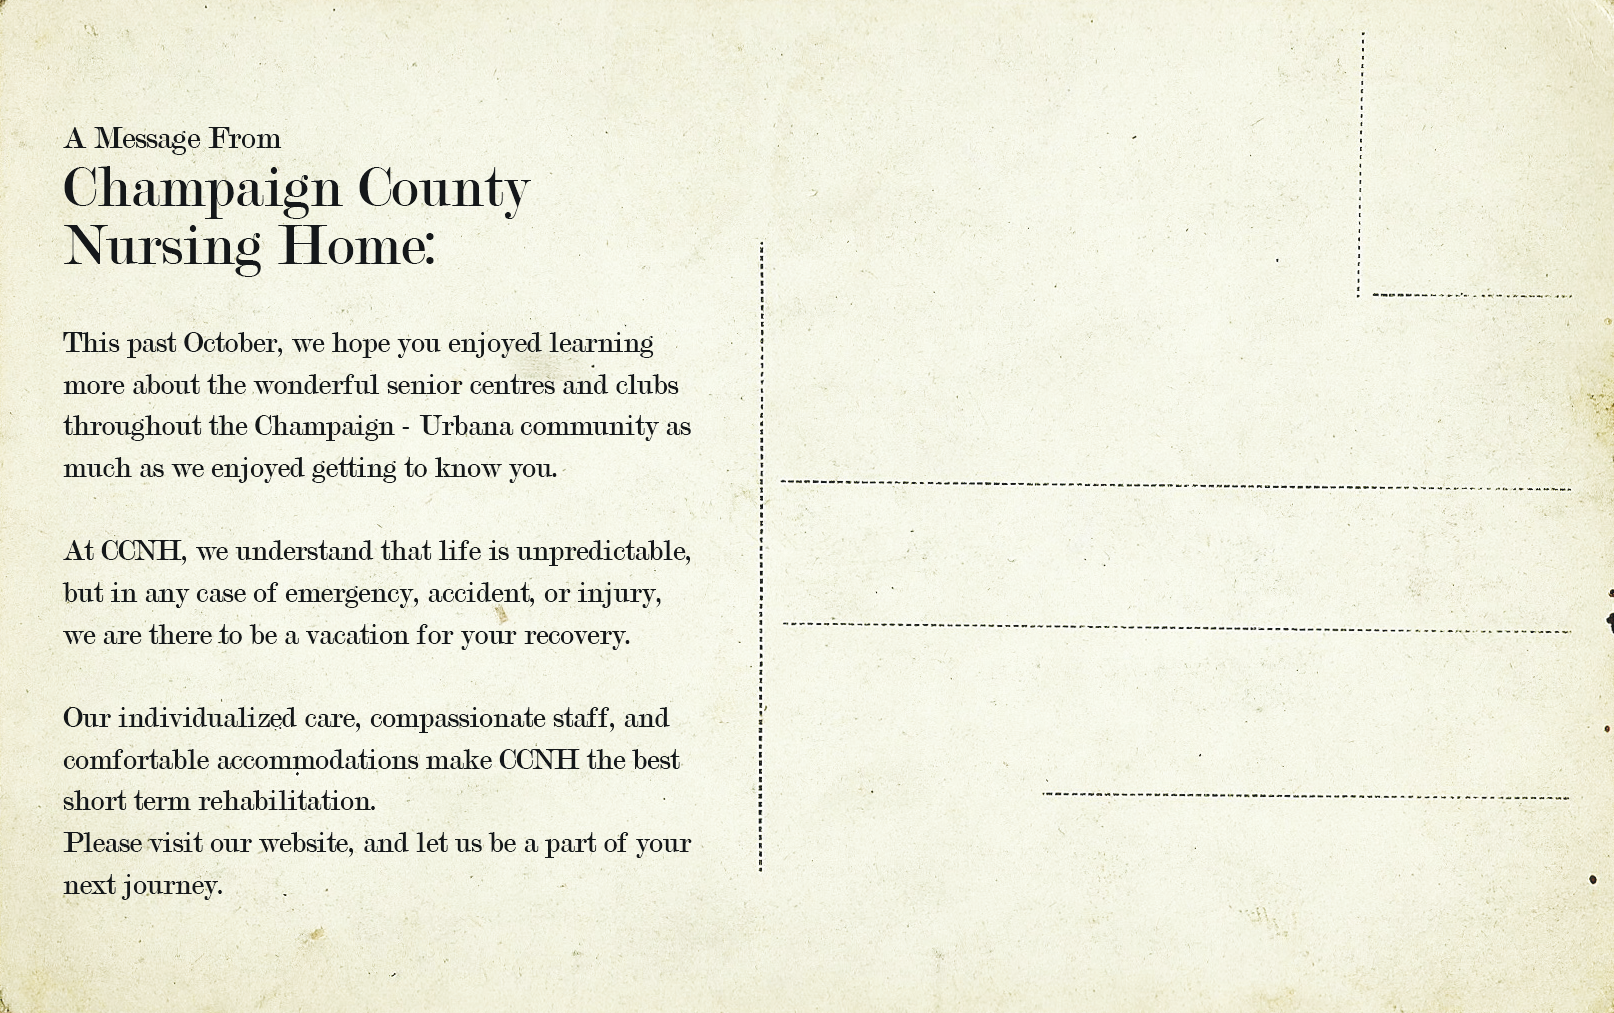 A Message From
Champaign County
Nursing Home:
This past October, we hope you enjoyed learning
more about the wonderful senior centres and clubs
throughout the Champaign - Urbana community as
much as we enjoyed getting to know you.
At CCNH, we understand that life is unpredictable,
but in any case of emergency, accident, or injury,
we are there to be a vacation for your recovery.
Our individualized care, compassionate staff, and
comfortable accommodations make CCNH the best
short term rehabilitation.
Please visit our website, and let us be a part of your
next journey.